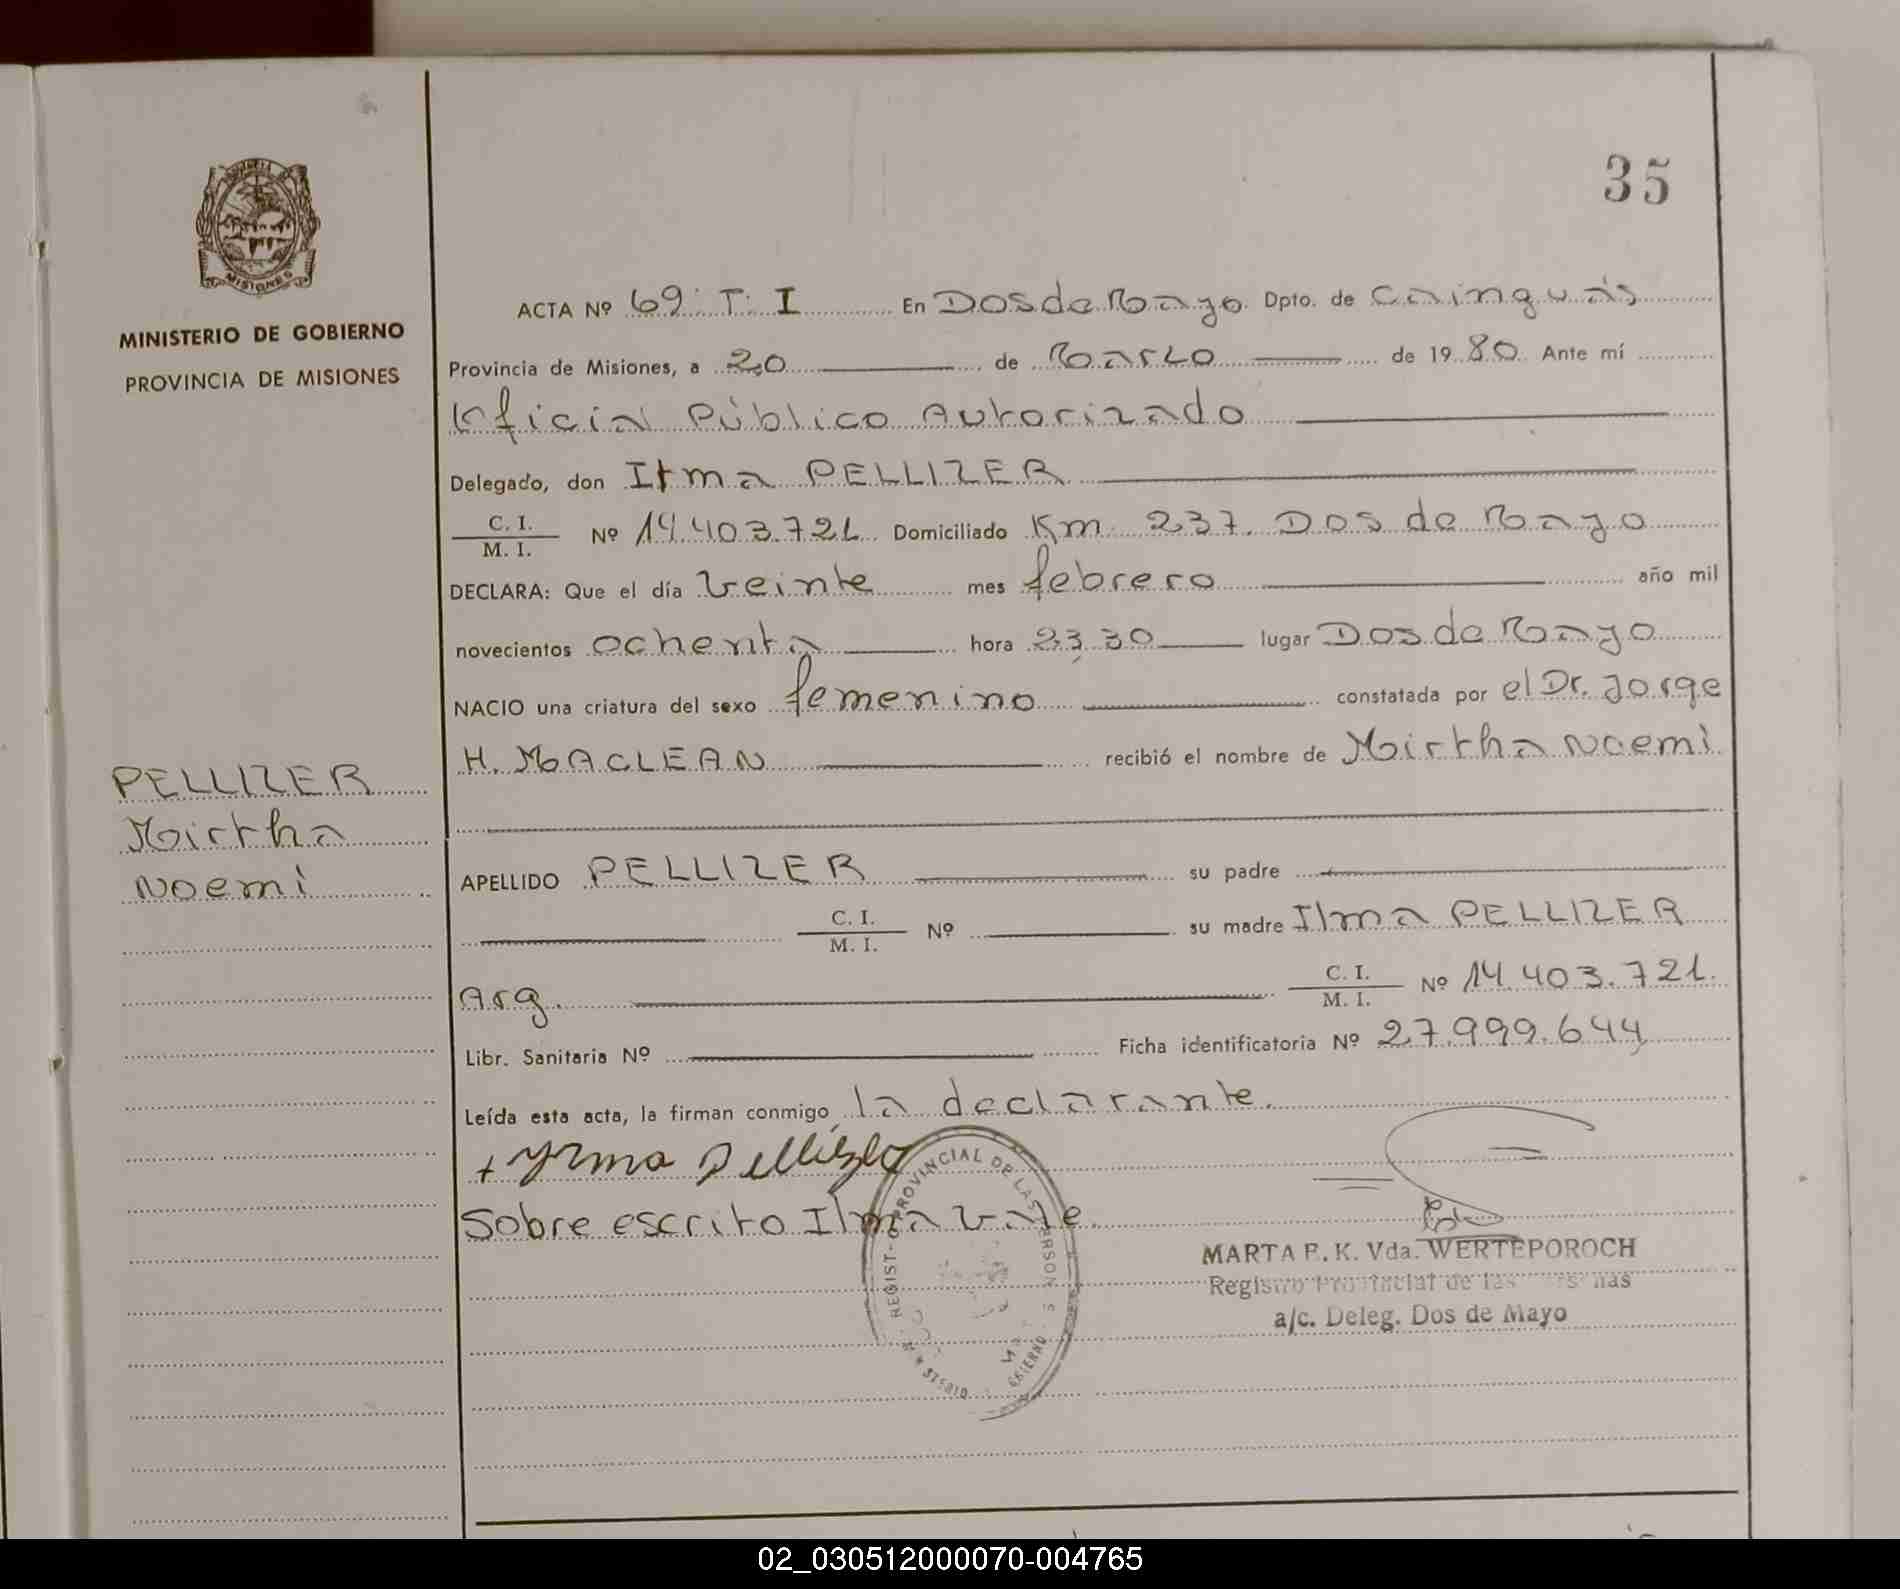 35
MISIONES
MINISTERIO DE GOBIERNO
PROVINCIA DE MISIONES
PELLIZER
Mirtha
Noemi
ACTA Nº 69. T. I En Dos de Mayo Dpto. de Cainguás
Provincia de Misiones, a 20 de Marzo de 1980 Ante mí
Oficial Público Autorizado
Delegado, don Ilma PELLIZER
C. I. / M. I. Nº 14.403.721 Domiciliado Km 237. Dos de Mayo
DECLARA: Que el día veinte mes febrero año mil
novecientos ochenta hora 23,30 lugar Dos de Mayo
NACIO una criatura del sexo femenino constatada por el Dr. Jorge
H. MACLEAN recibió el nombre de Mirtha Noemi
APELLIDO PELLIZER su padre
C. I. / M. I. Nº su madre Ilma PELLIZER
Arg. C. I. / M. I. Nº 14.403.721.
Libr. Sanitaria Nº Ficha identificatoria Nº 27.999.644
Leída esta acta, la firman conmigo, la declarante.
+ Yrma
Sobre escrito Ilma vale.
REGIST-O PROVINCIAL DE LAS
MARTA E. K. Vda. WERTEPOROCH
Registro Provincial de las
a/c. Deleg. Dos de Mayo
02_030512000070-004765